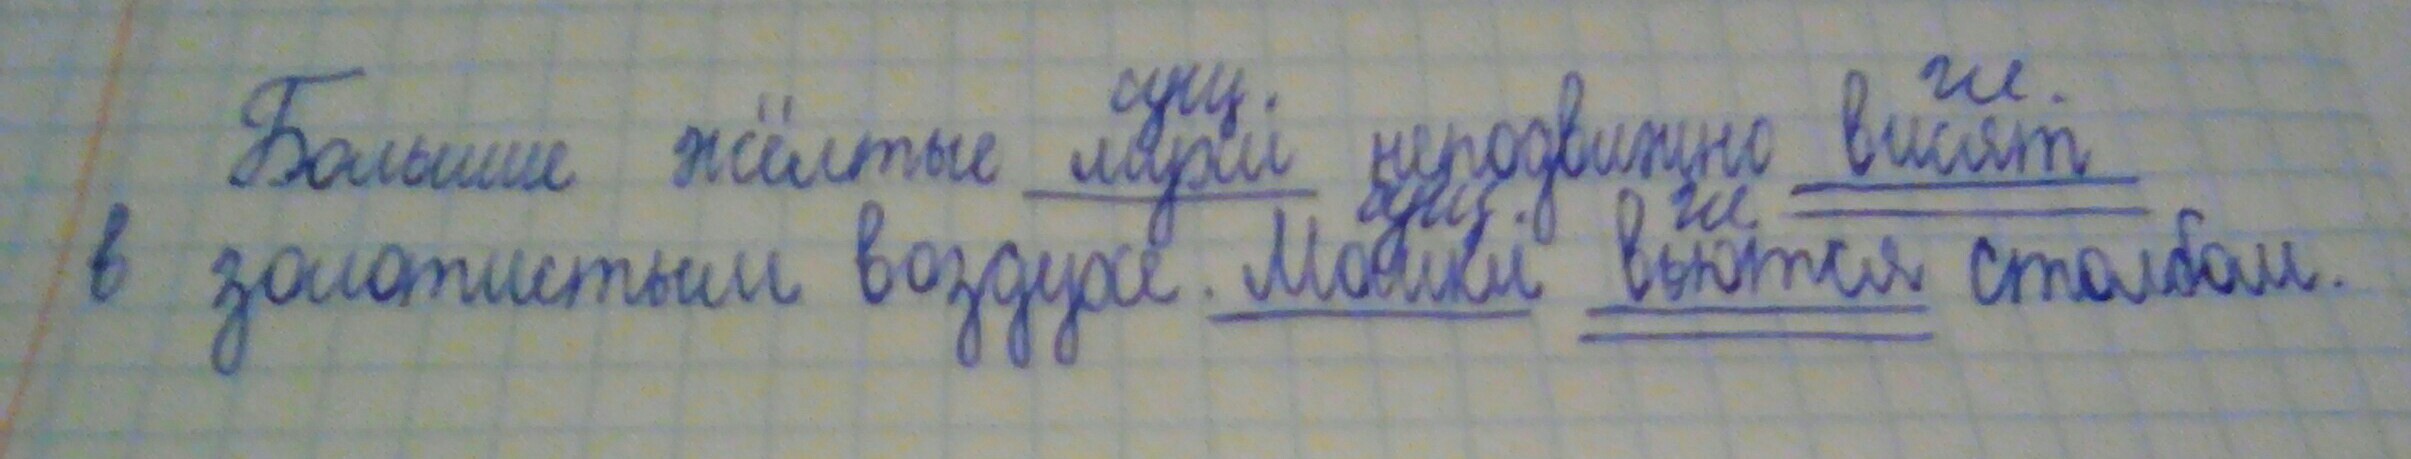 сущ. гл.
Большие жёлтые мухи неподвижно висят
сущ. гл.
в золотистым воздухе. Мошки вьются столбом.